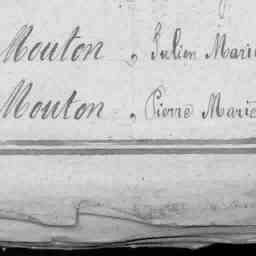 Mouton, Julien Marie
Mouton, Pierre Marie